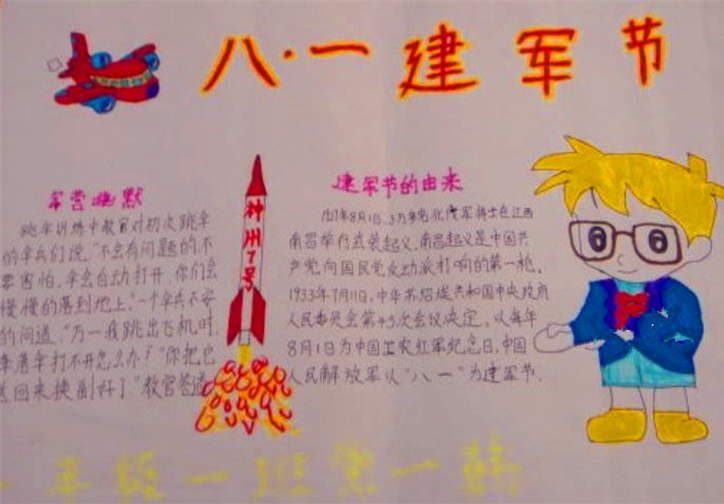 八·一建军节
军营幽默
跳伞训练中教官对初次跳伞
的伞兵们说，“不会有问题的，不
要害怕，伞会自动打开，你们会
慢慢的落到地上。”一个伞兵不安
的问道，“万一我跳出飞机时，
降落伞打不开怎么办？”“你把它
送回来换副好了。”教官答道
神州7号
建军节的由来
1927年8月1日，3万多名北伐军将士在江西
南昌举行武装起义，南昌起义是中国共
产党向国民党反动派打响的第一枪。
1933年7月11日，中华苏维埃共和国中央政府
人民委员会第45次会议决定，以每年
8月1日为中国工农红军纪念日，中国
人民解放军以“八一”为建军节．
年级一班第一